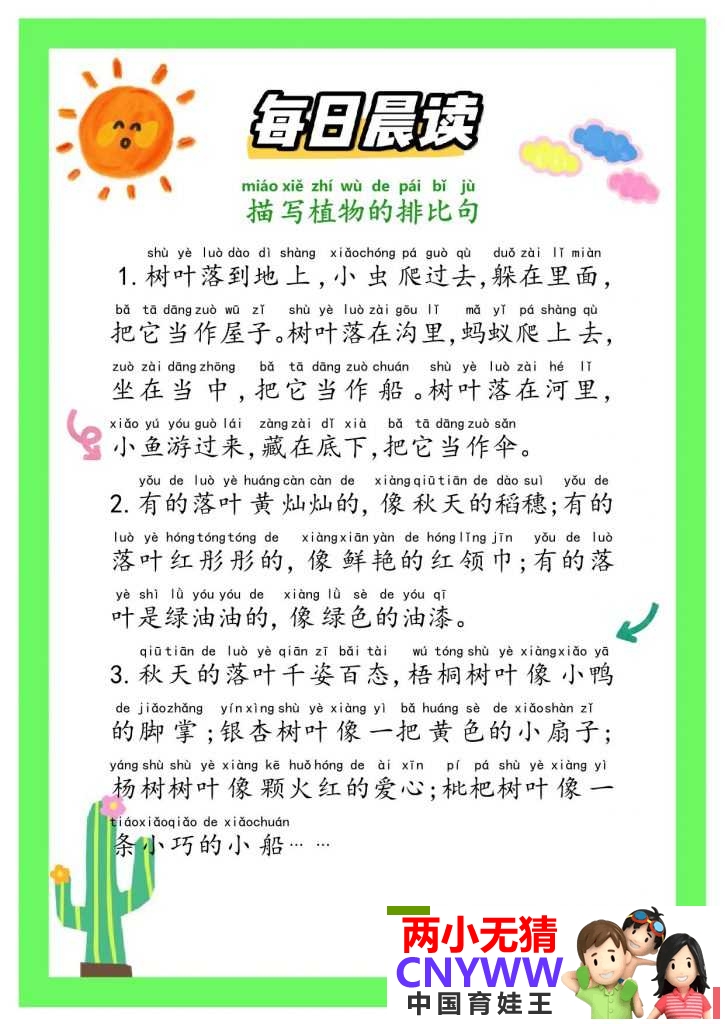 每日晨读
miáo xiě zhí wù de pái bǐ jù
描写植物的排比句
shù yè luò dào dì shàng xiǎo chóng pá guò qù duǒ zài lǐ miàn
1.树叶落到地上,小虫爬过去,躲在里面,
bǎ tā dāng zuò wū zǐ shù yè luò zài gōu lǐ mǎ yǐ pá shàng qù
把它当作屋子。树叶落在沟里,蚂蚁爬上去,
zuò zài dāng zhōng bǎ tā dāng zuò chuán shù yè luò zài hé lǐ
坐在当中,把它当作船。树叶落在河里,
xiǎo yú yóu guò lái zàng zài dǐ xià bǎ tā dāng zuò sǎn
小鱼游过来,藏在底下,把它当作伞。
yǒu de luò yè huáng càn càn de xiàng qiū tiān de dào suì yǒu de
2.有的落叶黄灿灿的,像秋天的稻穗;有的
luò yè hóng tóng tóng de xiàng xiān yàn de hóng lǐng jīn yǒu de luò
落叶红彤彤的,像鲜艳的红领巾;有的落
yè shì lǜ yóu yóu de xiàng lǜ sè de yóu qī
叶是绿油油的,像绿色的油漆。
qiū tiān de luò yè qiān zī bǎi tài wú tóng shù yè xiàng xiǎo yā
3.秋天的落叶千姿百态,梧桐树叶像小鸭
de jiǎo zhǎng yín xìng shù yè xiàng yì bǎ huáng sè de xiǎo shàn zǐ
的脚掌;银杏树叶像一把黄色的小扇子;
yáng shù shù yè xiàng kē huǒ hóng de ài xīn pí pá shù yè xiàng yì
杨树树叶像颗火红的爱心;枇杷树叶像一
tiáo xiǎo qiǎo de xiǎo chuán
条小巧的小船……
两小无猜
CNYWW
中国育娃王